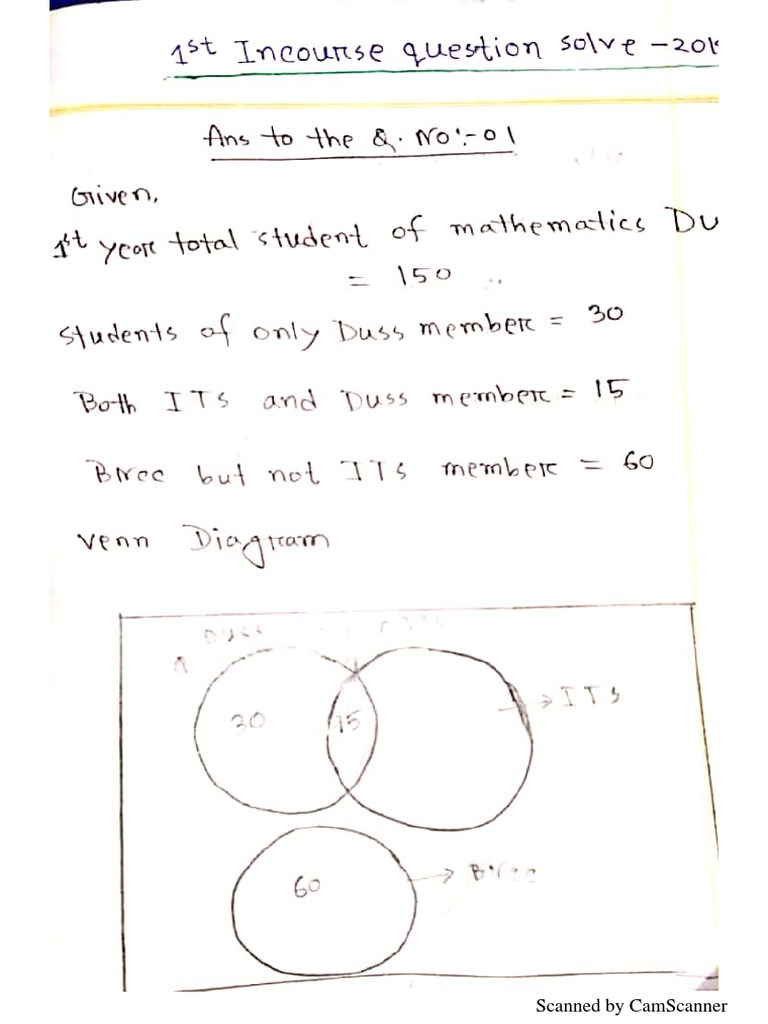 1st Incourse question solve - 201
Ans to the Q. No:-01
Given,
1st year total student of mathematics DU
= 150
Students of only Duss member = 30
Both ITS and Duss member = 15
but not ITS member = 60
Venn Diagram
Duss
30
15
ITS
60
Scanned by CamScanner